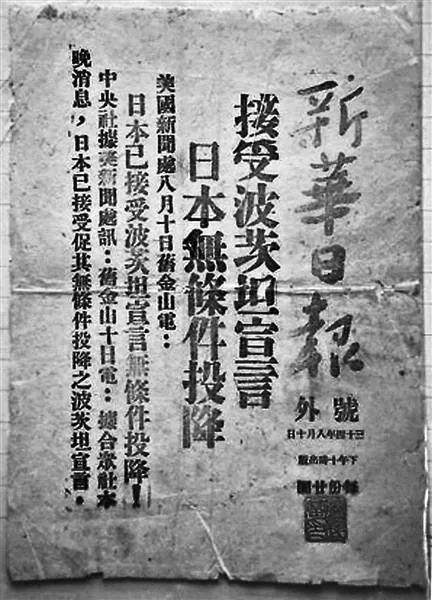 新華日報
號外
三十四年八月十日
下午十時出版
每份廿圓
接受波茨坦宣言
日本無條件投降
美國新聞處八月十日舊金山電：
日本已接受波茨坦宣言無條件投降！
中央社據美新聞處訊：舊金山十日電：據合眾社本
晚消息，日本已接受促其無條件投降之波茨坦宣言。